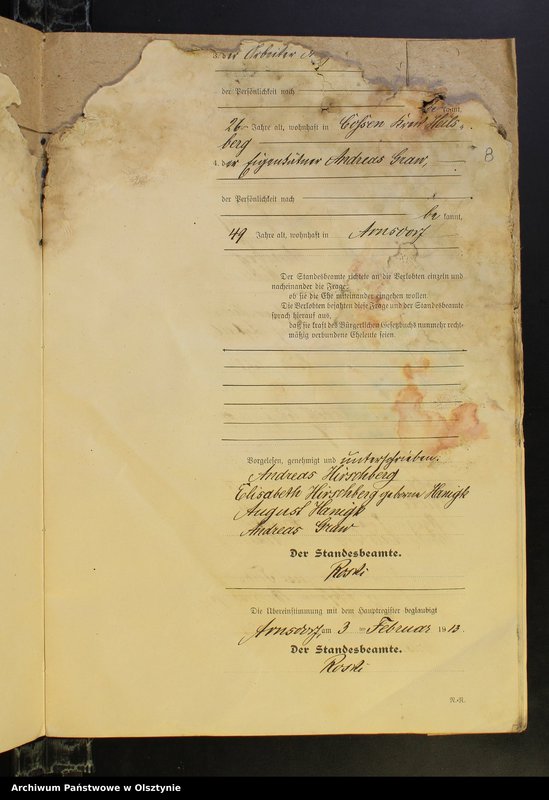 3. der Arbeiter
der Persönlichkeit nach
be kannt,
26 Jahre alt, wohnhaft in Cossen Kreis Heils-
berg
8
4. der Eigenkätner Andreas Graw,
der Persönlichkeit nach
be kannt,
49 Jahre alt, wohnhaft in Arnsdorf
Der Standesbeamte richtete an die Verlobten einzeln und
nacheinander die Frage:
ob sie die Ehe miteinander eingehen wollen.
Die Verlobten bejahten diese Frage und der Standesbeamte
sprach hierauf aus,
daß sie kraft des Bürgerlichen Gesetzbuchs nunmehr recht-
mäßig verbundene Eheleute seien.
Vorgelesen, genehmigt und unterschrieben.
Andreas Hirschberg
Elisabeth Hirschberg geborene Hanigk
August Hanigk
Andreas Graw
Der Standesbeamte.
Roski
Die Übereinstimmung mit dem Hauptregister beglaubigt
Arnsdorf, am 3 ten Februar 19 13.
Der Standesbeamte.
Roski
Archiwum Państwowe w Olsztynie